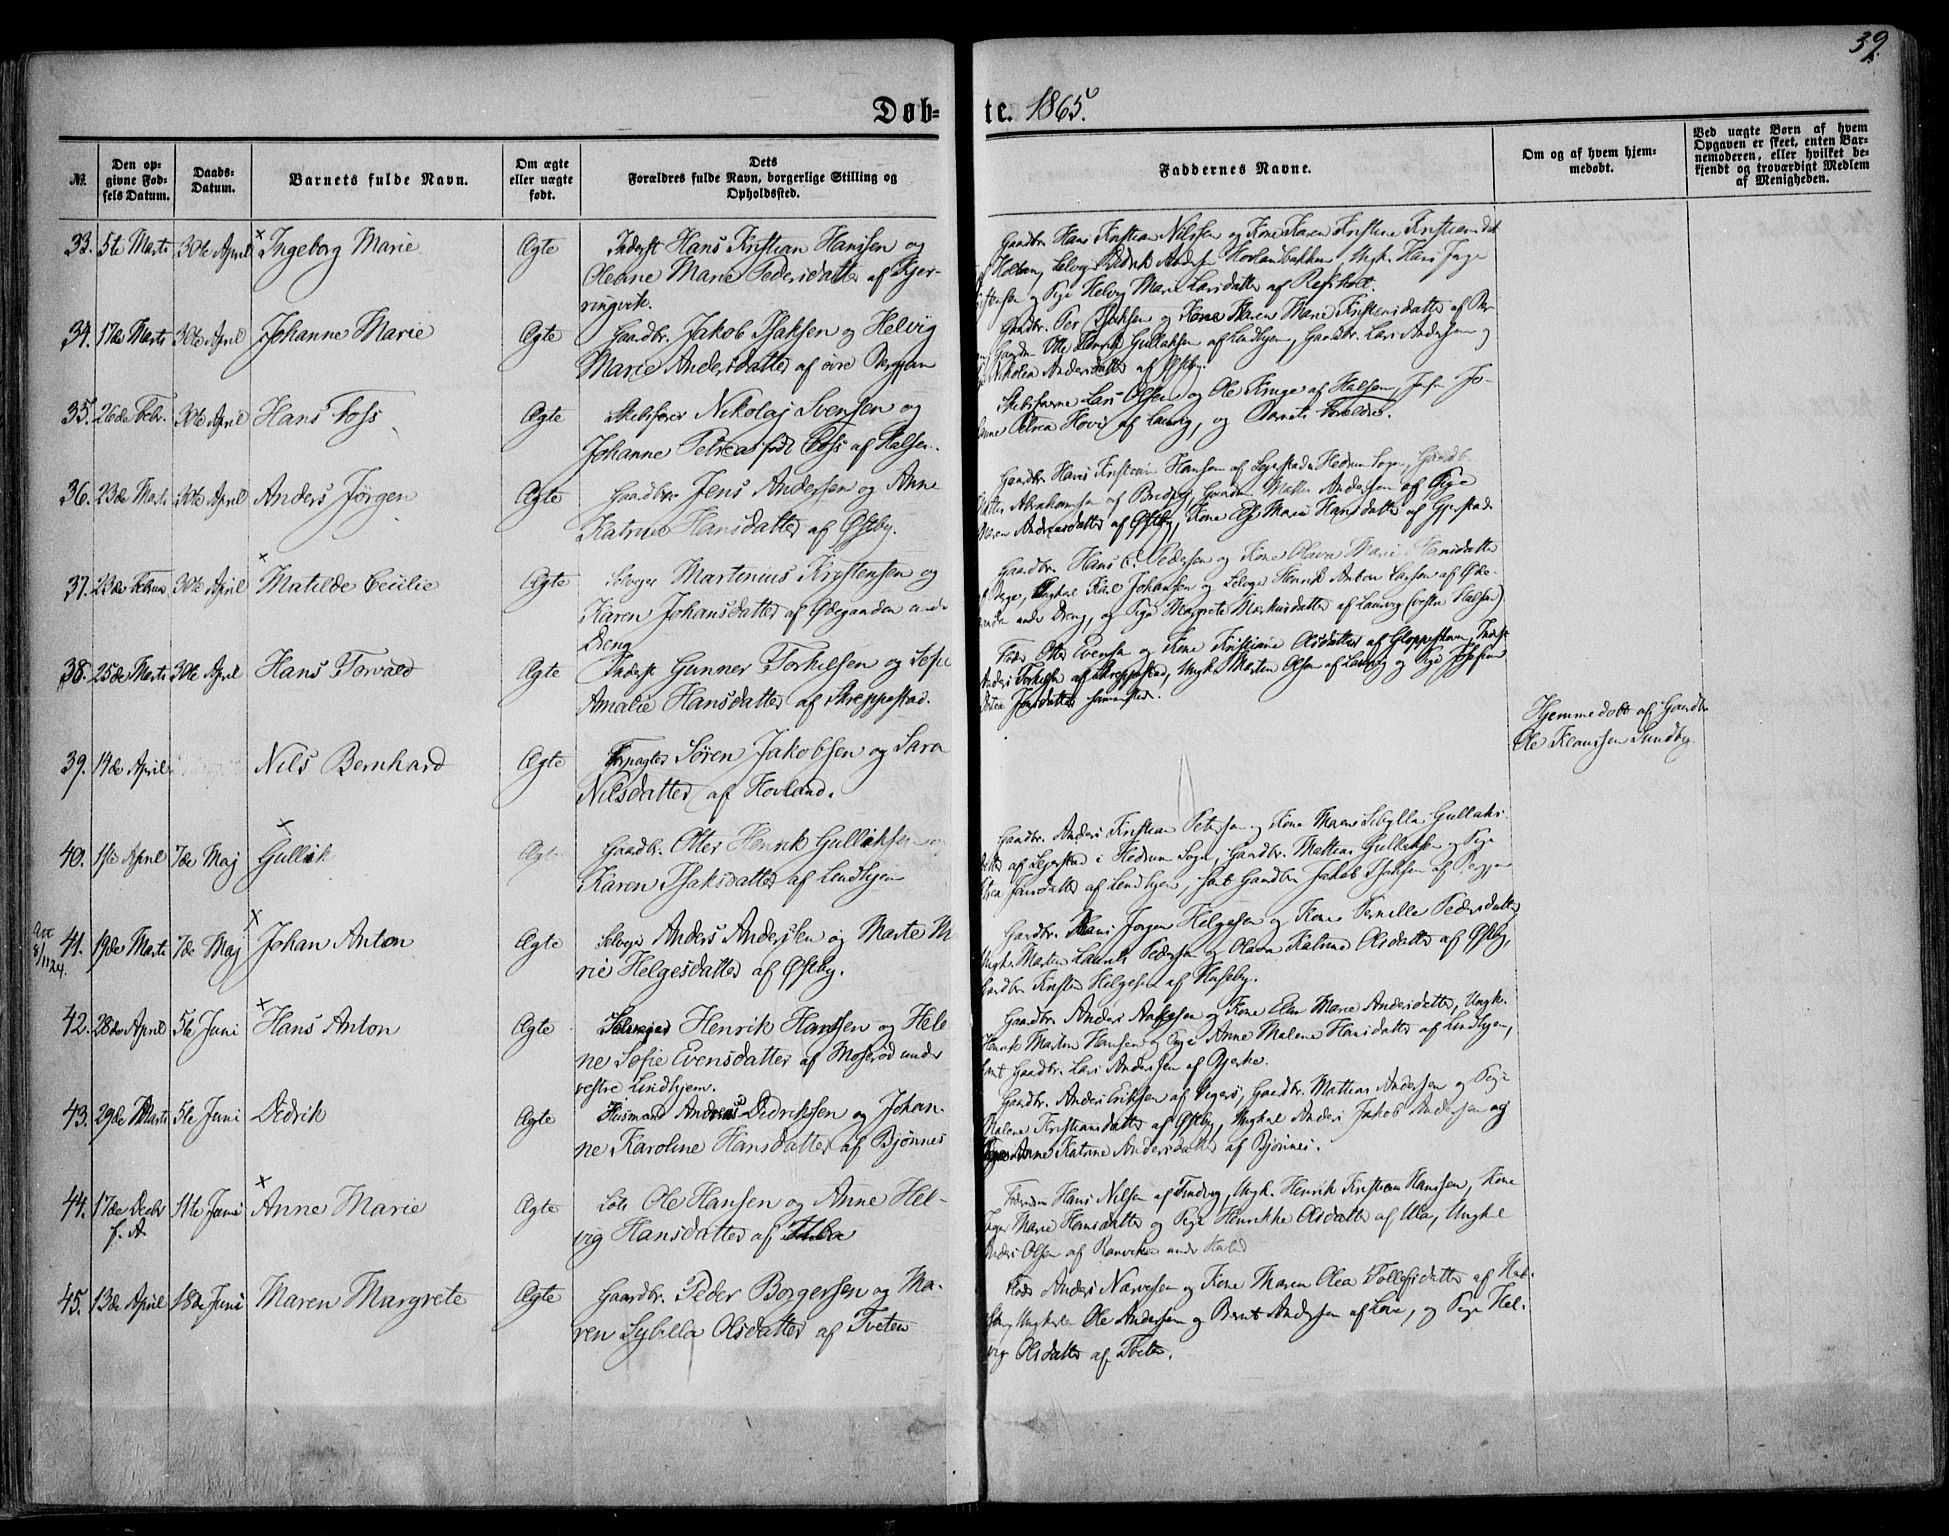 39.
Døb-te. 1865.
№.
Den op-
givne Fød-
sels Datum.
Daabs-
Datum.
Barnets fulde Navn.
Om ægte
eller uægte
født.
Dets
Forældres fulde Navn, borgerlige Stilling og
Opholdssted.
Faddernes Navne.
Om og af hvem hjem-
medøbt.
Ved uægte Børn af hvem
Opgaven er skeet, enten Bar-
nemoderen, eller hvilket be-
kjendt og troværdigt Medlem
af Menigheden.
33. 5te Marts 30te April Ingeborg Marie Ægte Inderst Hans Kristian Hansen og
Oleane Marie Pedersdatter af Kjer-
ringvik.
Gaardbr. Hans Kristian Nilssen og Kone Karen Kristine Kristiansdat
Holtan, Selveier Didrik Andersen Hovlandbakken, Ungk. Hans Inge
og Pige Helvig Marie Larsdatter af Refsholt.
34. 17de Marts 30te April Johanne Marie Ægte Gaardbr. Jakob Isaksen og Helvig
Marie Andersdatter af øvre Bergan
Gaardbr. Per Isaksen og Kone Maren Marie Kristensdatter af Ber
Gaardm Ole Henrik Gullaksen af Lindhjem, Gaardbr. Lars Andersen og
Nikolea Andersdatter af Østby.
35. 26de Febr. 30te April Hans Foss Ægte Skibsfører Nikolaj Svensen og
Johanne Petrea født Foss af Halsen.
Skibsførerne Lars Olsen og Ole Kruge af Halsen, Jo-
hanne Petrea Hovi af Laurvig, og Barnets Forældre.
36. 23de Marts 30te April Anders Jørgen Ægte Gaardbr. Jens Andersen og Anne
Katrine Hansdatter af Østby.
Gaardbr. Hans Kristian Hansen af Lejerstad i Hedrum Sogn, Gaardb
Abrahamsen af Mattis Andersen af Pige
Maren Andreasdatter af Østby, Kone Else Marie Hansdatter af Gjerstad
37. 23de Februar 30te April Matilde Cecilie Ægte Selveier Martinius Kristensen og
Karen Johansdatter af Ødegaarden under
Breng
Gaardbr. Hans C. Pedersen og Kone Olava Marie Hansdatter
Ungkarl Karl Johansen og Selveier Henrik Anton Larsen af Øde-
under Breng, og Pige Margrete Markusdatter af Laurvig (vestre Halsen)
38. 25de Marts 30te April Hans Torvald Ægte Inderst Gunner Torkilsen og Sofie
Amalie Hansdatter af Skreppestad.
Føder. Otter Evensen og Kone Kristiane Olsdatter af Gloppestrøm, Inderst
Anders Torkilsen af Skreppestad, Ungk. Morten Olsen af Laurvig og Pige Josefine
Jonsdatter sammested.
39. 14de April Nils Bernhard Ægte Forpagter Søren Jakobsen og Sara
Nilsdatter af Hovland.
Hjemmedøbt af Gaardbr
Ole Klaussen Sundby
40. 1ste April 7de Maj Gullik Ægte Gaardbr. Otter Henrik Gulliksen og
Karen Isaksdatter af Lindhjem
Gaardbr. Anders Kristian Petersen og Kone Maren Sibylla Gullaks-
datter af Lejerstad i Hedrum Sogn, Gaardbr. Mattias Gullaksen og Pige
Hansdatter af Lindhjem, samt Gaardbr Jakob Isaksen af Bergan
8/11 24.
41. 19de Marts 7de Maj Johan Anton Ægte Selveier Anders Andersen og Marte Ma
rie Helgesdatter af Østby.
Gaardbr. Hans Jørgen Helgesen og Kone Pernille Pedersdatter
Ungk. Morten Laurits Pedersen og Olava Katrine Olsdatter af Østby,
Gaardbr Kristen Helgesen af Huseby.
42. 28de April 5te Juni Hans Anton Ægte Selveier Henrik Hansen og Hele
ne Sofie Evensdatter af Moserød under
vestre Lindhjem.
Gaardbr. Anders Aakesen og Kone Elen Marie Andersdatter, Ungk.
Henrik Morten Hansen og Pige Anne Malene Hansdatter af Lindhjem,
samt Gaardbr. Lars Andersen af Bjerke.
43. 29de Marts 5te Juni Didrik Ægte Husmand Andreas Didriksen og Johan-
ne Karoline Hansdatter af Bjønnes
Gaardbr. Anders Eriksen af Vegers, Gaardbr. Mattias Andersen og Pige
Malene Kristiansdatter af Østby, Ungkarl Anders Jakob Andersen og
Pige Anne Katrine Andersdatter af Bjønnes.
44. 17de Decbr
f. A 11te Juni Anne Marie Ægte Lods Ole Hansen og Anne Hel-
vig Hansdatter af Ula
Hans Nilsen af Tindvig, Ungk. Henrik Kristian Hanssen, Kone
Inger Marie Hansdatter og Pige Henrikke Olsdatter af Ula, Ungkarl
Anders Olsen af Ranviken under
45. 13de April 18de Juni Maren Margrete Ægte Gaardbr. Peder Borgersen og Ma-
ren Sybilla Olsdatter af Tveten
Føder. Anders Narvesen og Kone Maren Olea Tollefsdatter af Hal-
sen, Ungkarle Ole Andersen og Bernt Andersen af Love, og Pige Hel-
vig Olsdatter af Tveten.